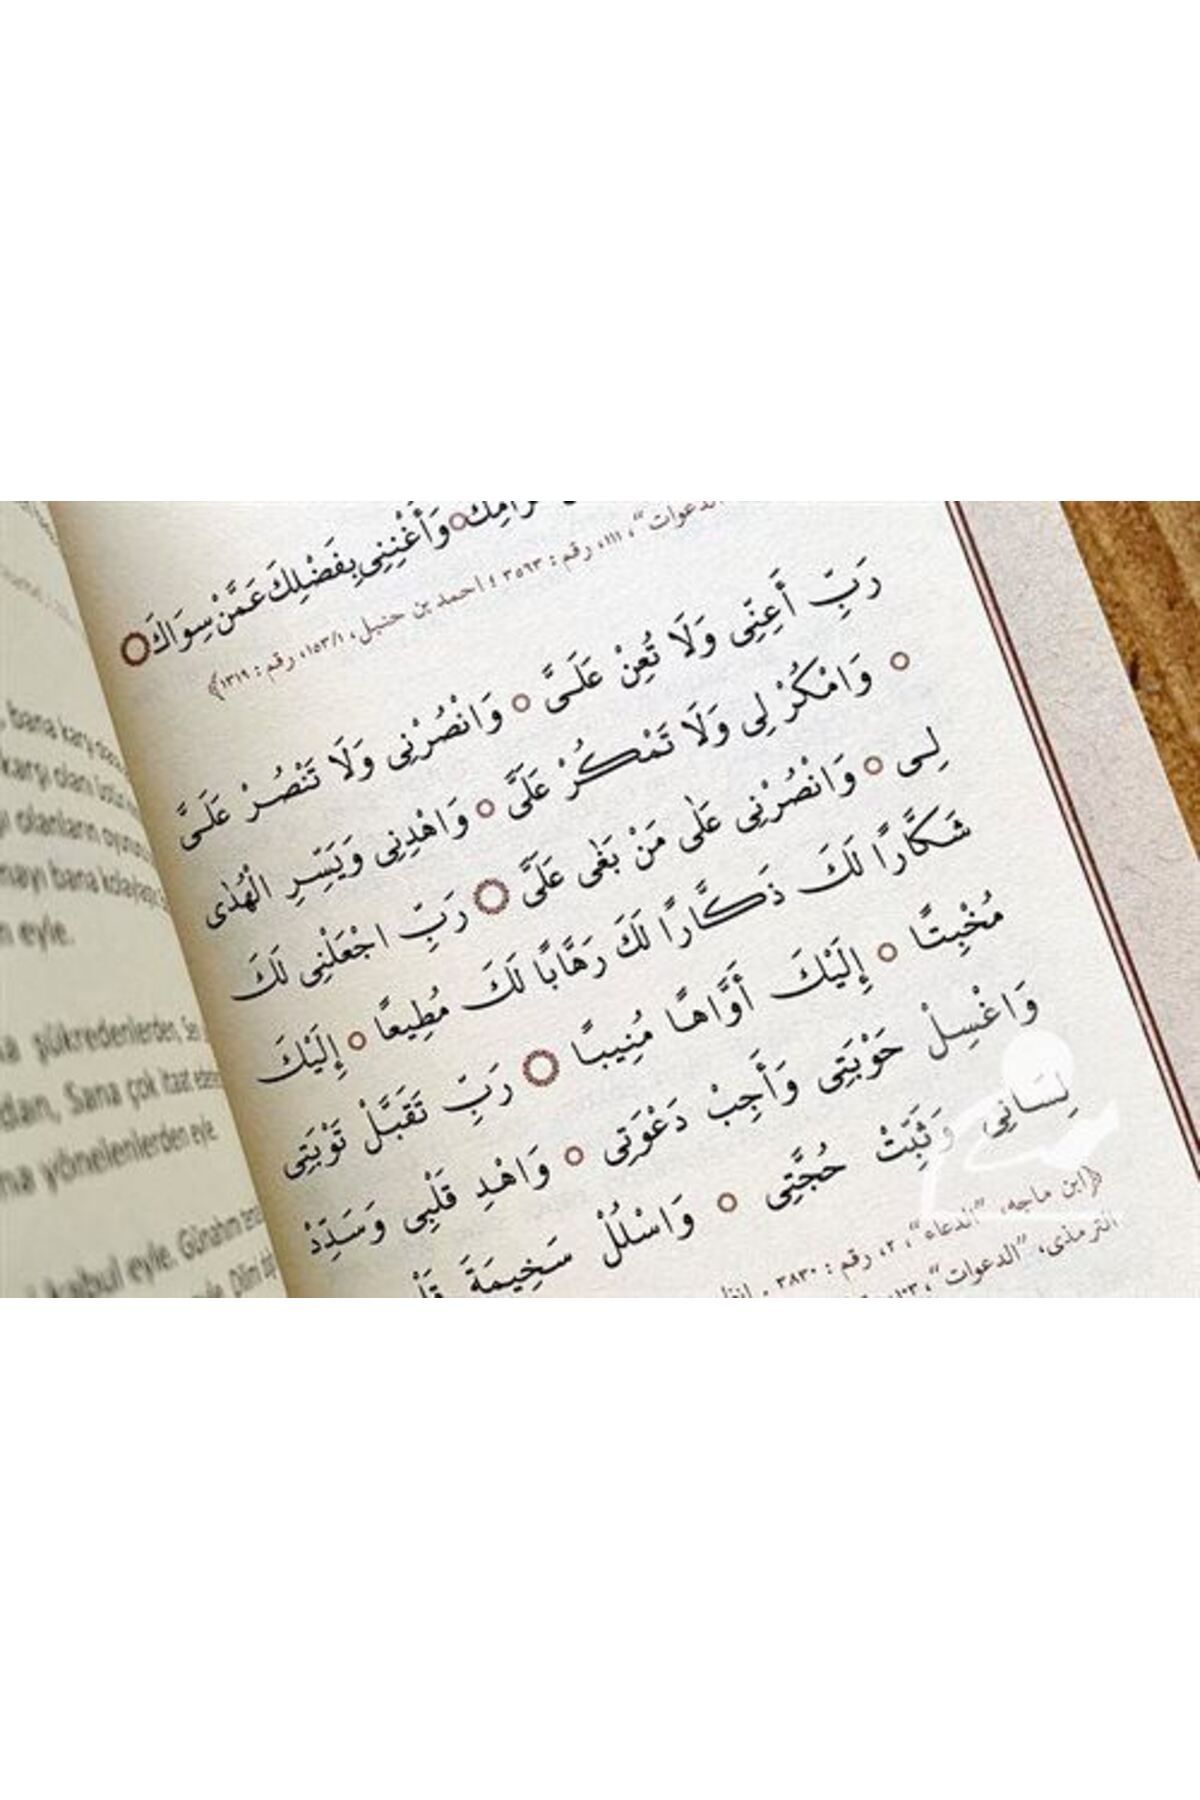 وَأَغْنِنِى بِفَضْلِكَ عَمَّنْ سِوَاكَ
الدعوات“، ١١١، رقم: ٣٥٦٣؛ احمد بن حنبل، ١٥٣/١، رقم: ١٣١٩﴾
رَبِّ أَعِنِّى وَلَا تُعِنْ عَلَىَّ ○ وَانْصُرْنِى وَلَا تَنْصُرْ عَلَىَّ
○ وَامْكُرْ لِى وَلَا تَمْكُرْ عَلَىَّ ○ وَاهْدِنِى وَيَسِّرِ الْهُدٰى
لِى ○ وَانْصُرْنِى عَلٰى مَنْ بَغٰى عَلَىَّ ○ رَبِّ اجْعَلْنِى لَكَ
شَكَّارًا لَكَ ذَكَّارًا لَكَ رَهَّابًا لَكَ مُطِيعًا ○ إِلَيْكَ
مُخْبِتًا ○ إِلَيْكَ أَوَّاهًا مُنِيبًا ○ رَبِّ تَقَبَّلْ تَوْبَتِى
وَاغْسِلْ حَوْبَتِى وَأَجِبْ دَعْوَتِى ○ وَاهْدِ قَلْبِى وَسَدِّدْ
لِسَانِى وَثَبِّتْ حُجَّتِى ○ وَاسْلُلْ سَخِيمَةَ
﴿ابن ماجه، ”الدعاء“، ٢، رقم: ٣٨٣٠.
الترمذى، ”الدعوات“،
bana karşı
karşı olanı
olanların oyununu
bana
eyle.
Sana çok itaat
yönelenlerden eyle.
kabul eyle. Günahım